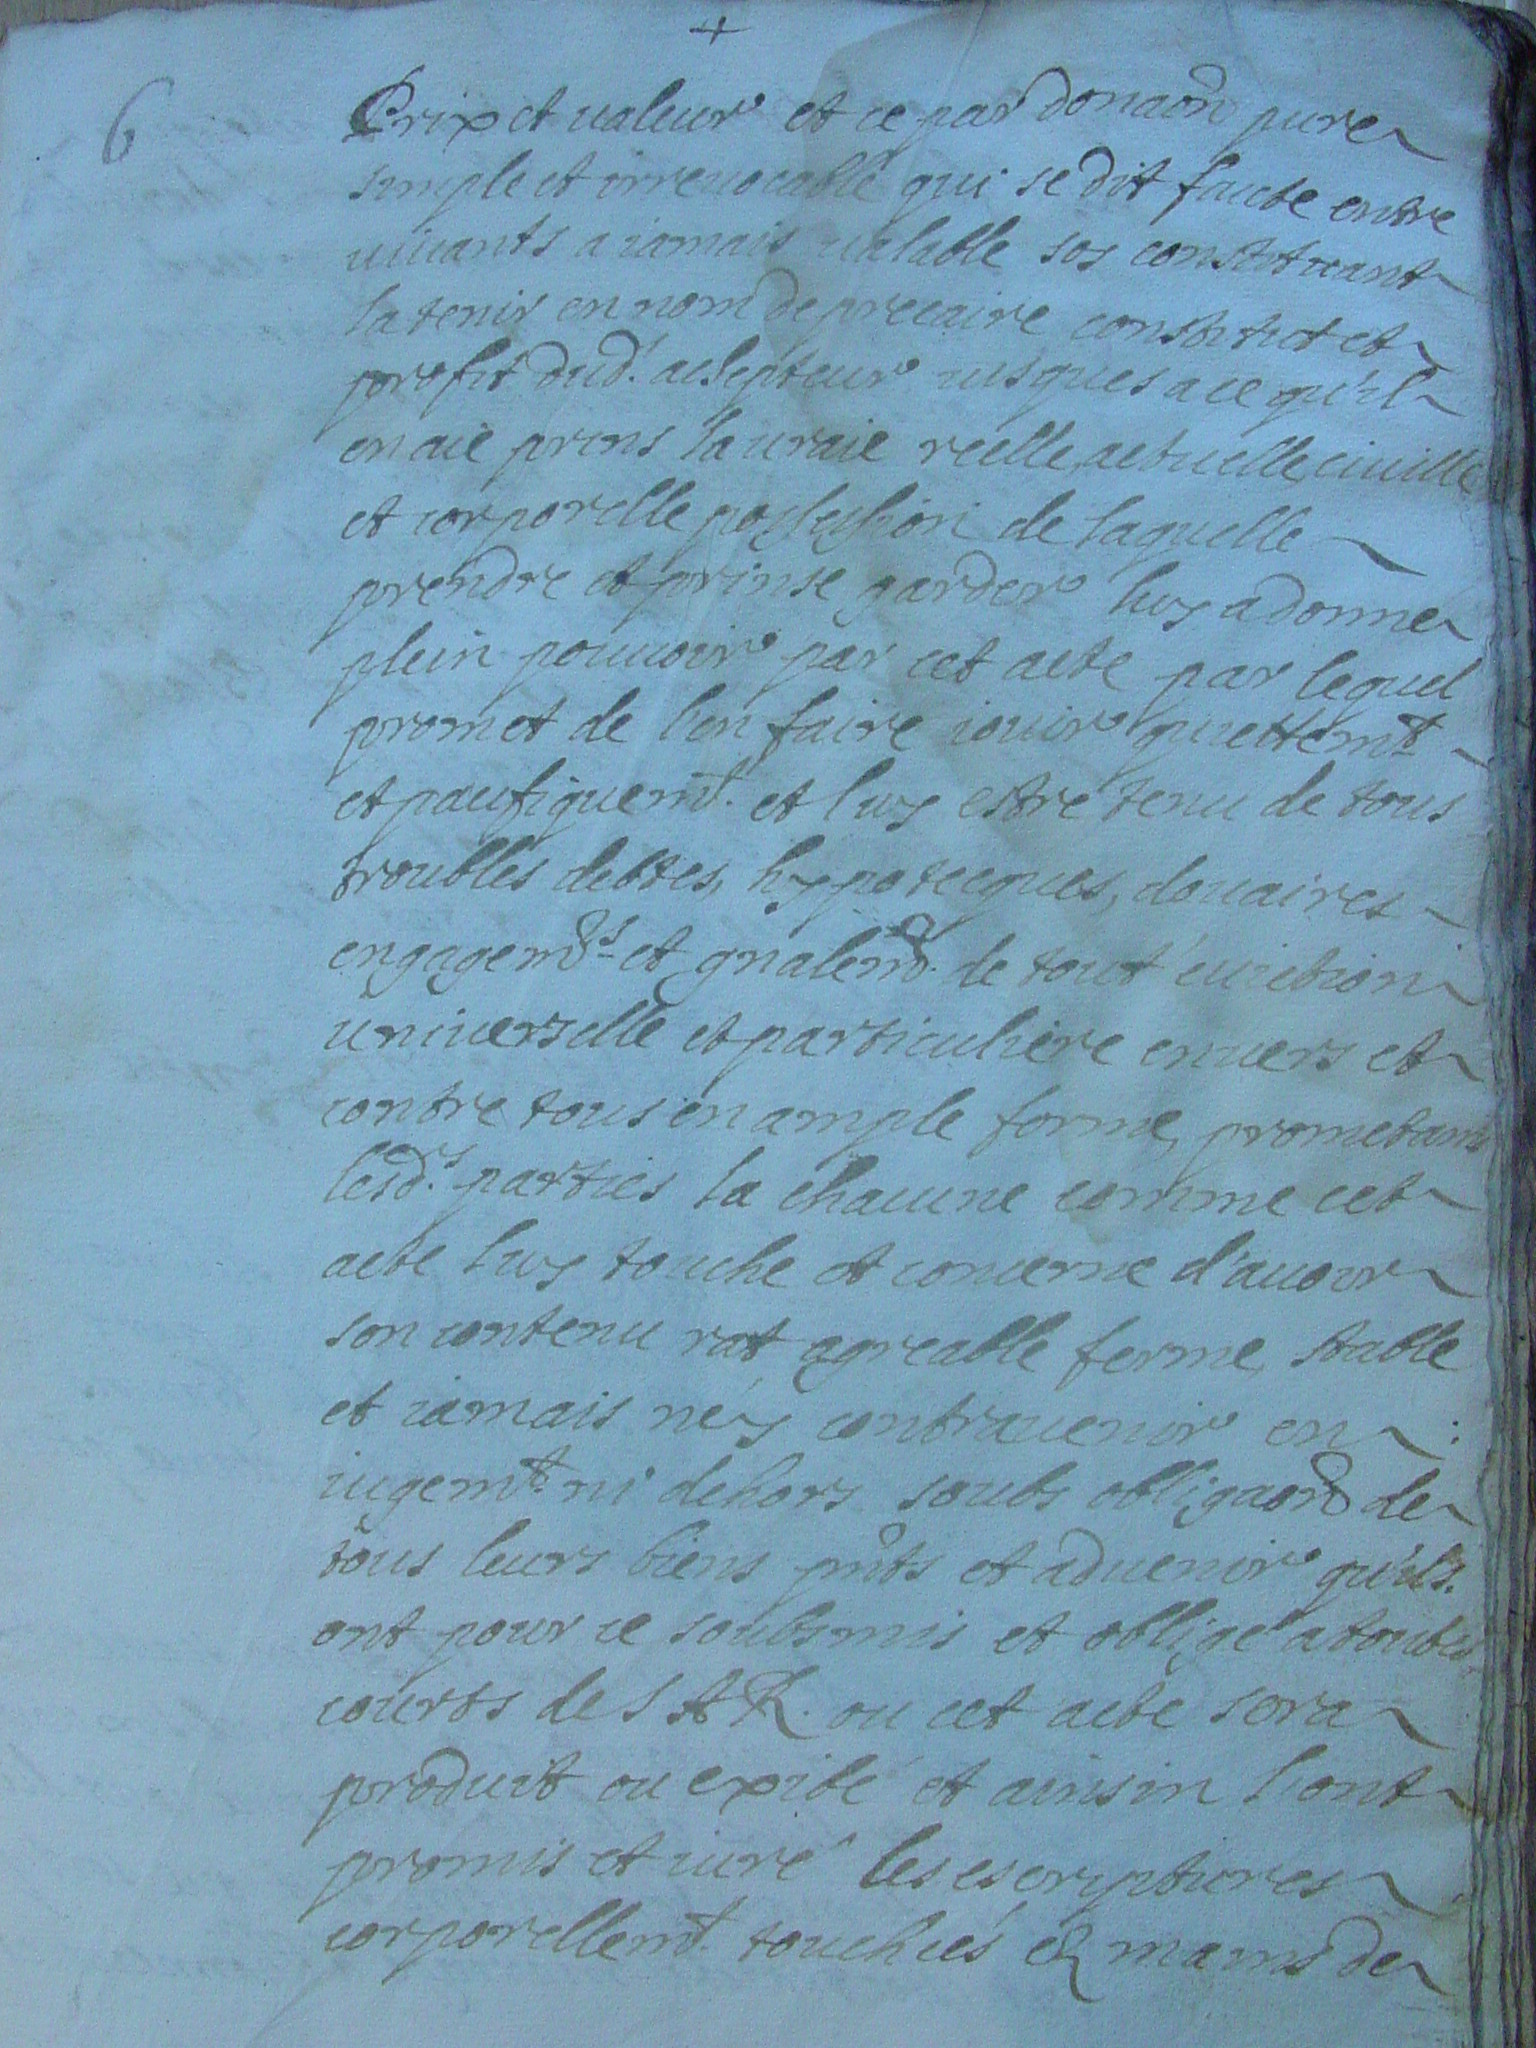 +
6
Prix et valeur et ce par donaõn pure
simple et irrevocable qui se dit faicte entre
vivants a iamais valable soy constituant
la tenir en nom de precaire constitut et
profit dud. acsepteur iusques a ce qu'il
en aie prins la uraie reelle, actuelle, ciuille
et corporelle possession de laquelle
prendre et prinse garder luy a donne
plein pouuoir par cet acte par lequel
promet de l'en faire iouir quiettemt
et paufiquemt. et luy estre tenu de tous
troubles debtes, hypotecques, douaires
engagemts et gnalemt. de tout euiction
uniuerselle et particuliere enuers et
contre tous en ample forme, prometans
lesd.s parties la chacune comme cet
acte luy touche et concerne d'auoir
son contenu rat agreable ferme, stable
et iamais n'éy contrauenir en
iugemt. ni dehors soubs obligaõn de
tous leurs biens pnts et aduenir qu'ils
ont pour ce soubsmis et obligé a toutes
courts de S A R. ou cet acte sera
produit ou exibé et ainsin l'ont
promis et iuré les escriptures
corporellemt. touchées es mains de